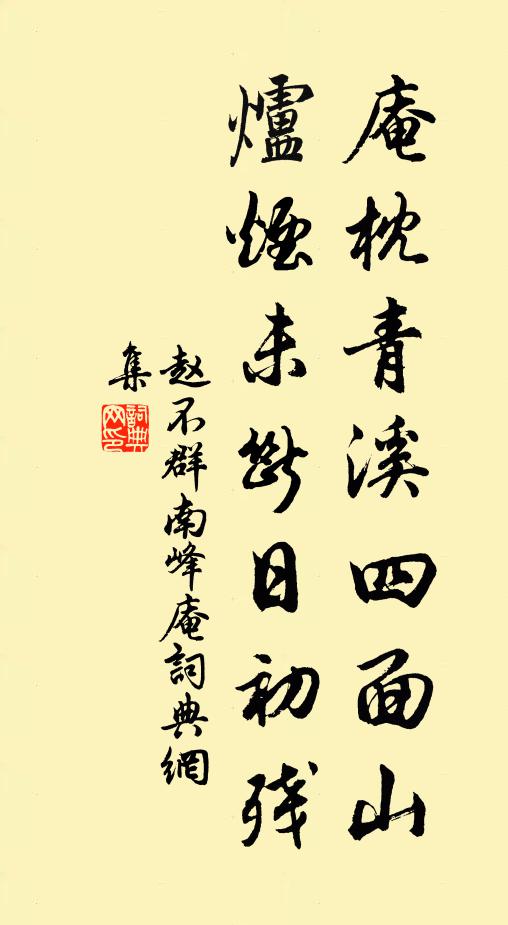 庵枕青溪四面山
爐煙未断日初残
赵不群南峰庵詞典網
集
詞典网印